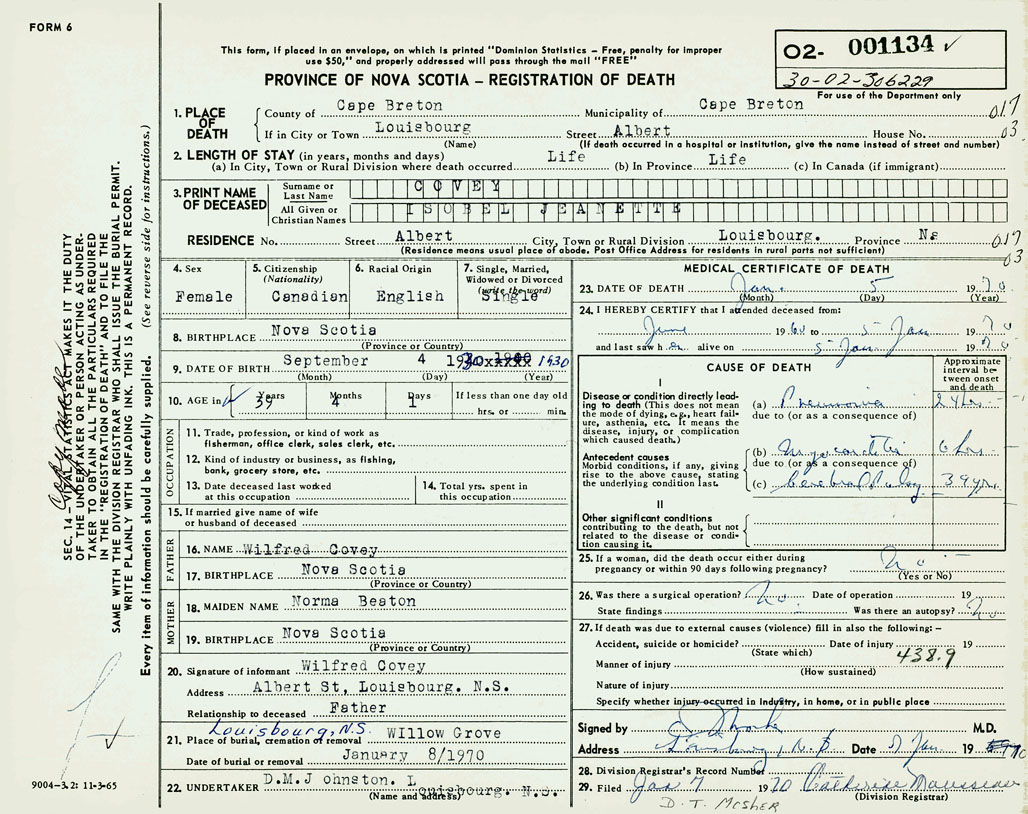 FORM 6
This form, if placed in an envelope, on which is printed "Dominion Statistics – Free, penalty for improper
use $50," and properly addressed will pass through the mail "FREE"
PROVINCE OF NOVA SCOTIA – REGISTRATION OF DEATH
O2- 001134 ✓
30-02-306229
For use of the Department only
017
03
1. PLACE OF DEATH
County of Cape Breton Municipality of Cape Breton
If in City or Town Louisbourg Street Albert House No.
(Name) (If death occurred in a hospital or institution, give the name instead of street and number)
2. LENGTH OF STAY (in years, months and days)
(a) In City, Town or Rural Division where death occurred Life (b) In Province Life (c) In Canada (if immigrant)
3. PRINT NAME OF DECEASED
Surname or Last Name COVEY
All Given or Christian Names ISOBEL JEANETTE
RESIDENCE No. Street Albert City, Town or Rural Division Louisbourg. Province Ns
(Residence means usual place of abode. Post Office Address for residents in rural parts not sufficient)
017
03
4. Sex
Female
5. Citizenship
(Nationality)
Canadian
6. Racial Origin
English
7. Single, Married,
Widowed or Divorced
(write the word)
Single
8. BIRTHPLACE Nova Scotia
(Province or Country)
9. DATE OF BIRTH September 4 1930
(Month) (Day) (Year)
10. AGE in Years Months Days If less than one day old
39 4 1 hrs. or min.
OCCUPATION
11. Trade, profession, or kind of work as
fisherman, office clerk, sales clerk, etc.
12. Kind of industry or business, as fishing,
bank, grocery store, etc.
13. Date deceased last worked
at this occupation
14. Total yrs. spent in
this occupation
15. If married give name of wife
or husband of deceased
FATHER
16. NAME Wilfred Covey
17. BIRTHPLACE Nova Scotia
(Province or Country)
MOTHER
18. MAIDEN NAME Norma Beaton
19. BIRTHPLACE Nova Scotia
(Province or Country)
20. Signature of informant Wilfred Covey
Address Albert St, Louisbourg. N.S.
Relationship to deceased Father
Louisbourg, N.S.
21. Place of burial, cremation or removal WIllow Grove
Date of burial or removal January 8/1970
22. UNDERTAKER D.M.J ohnston. Louisbourg. N.S.
(Name and address)
MEDICAL CERTIFICATE OF DEATH
23. DATE OF DEATH Jan. 5 1970
(Month) (Day) (Year)
24. I HEREBY CERTIFY that I attended deceased from:
June 1960 to 5 Jan 1970
and last saw her alive on 5 Jan 1970
CAUSE OF DEATH
Approximate
interval be-
tween onset
and death
I
Disease or condition directly lead-
ing to death (This does not mean
the mode of dying, e.g., heart fail-
ure, asthenia, etc. It means the
disease, injury, or complication
which caused death.)
(a) Pneumonia 24 hrs
due to (or as a consequence of)
Antecedent causes
Morbid conditions, if any, giving
rise to the above cause, stating
the underlying condition last.
(b) Myocarditis 6 hrs
due to (or as a consequence of)
(c) Cerebral Palsy 39 yrs.
II
Other significant conditions
contributing to the death, but not
related to the disease or condi-
tion causing it.
25. If a woman, did the death occur either during
pregnancy or within 90 days following pregnancy? No
(Yes or No)
26. Was there a surgical operation? No. Date of operation 19
State findings Was there an autopsy? No
27. If death was due to external causes (violence) fill in also the following: –
Accident, suicide or homicide? Date of injury 19
(State which) 438.9
Manner of injury
(How sustained)
Nature of injury
Specify whether injury occurred in industry, in home, or in public place
Signed by M.D.
Address Louisbourg, N.S. Date 5 Jan 1970
28. Division Registrar's Record Number
29. Filed Jan 7 1970 Catherine
(Division Registrar)
D. T. MOSHER
SEC. 14 – VITAL STATISTICS ACT MAKES IT THE DUTY
OF THE UNDERTAKER OR PERSON ACTING AS UNDER-
TAKER TO OBTAIN ALL THE PARTICULARS REQUIRED
IN THE "REGISTRATION OF DEATH" AND TO FILE THE
SAME WITH THE DIVISION REGISTRAR WHO SHALL ISSUE THE BURIAL PERMIT.
WRITE PLAINLY WITH UNFADING INK. THIS IS A PERMANENT RECORD.
Every item of information should be carefully supplied. (See reverse side for instructions.)
9004–3.2: 11-3-65